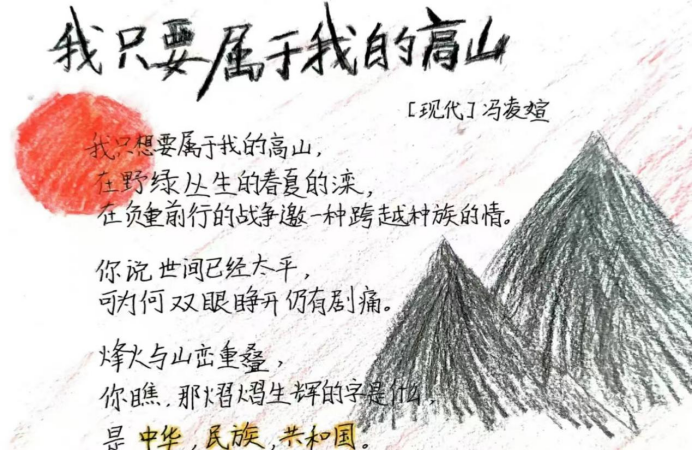 我只要属于我的高山
[现代] 冯夜煊
我只想要属于我的高山，
在野绿丛生的春夏的滦，
在负重前行的战争邀一种跨越种族的情。
你说世间已经太平，
可为何双眼睁开仍有剧痛。
烽火与山峦重叠，
你瞧，那熠熠生辉的字是什么，
是中华，民族，共和国。